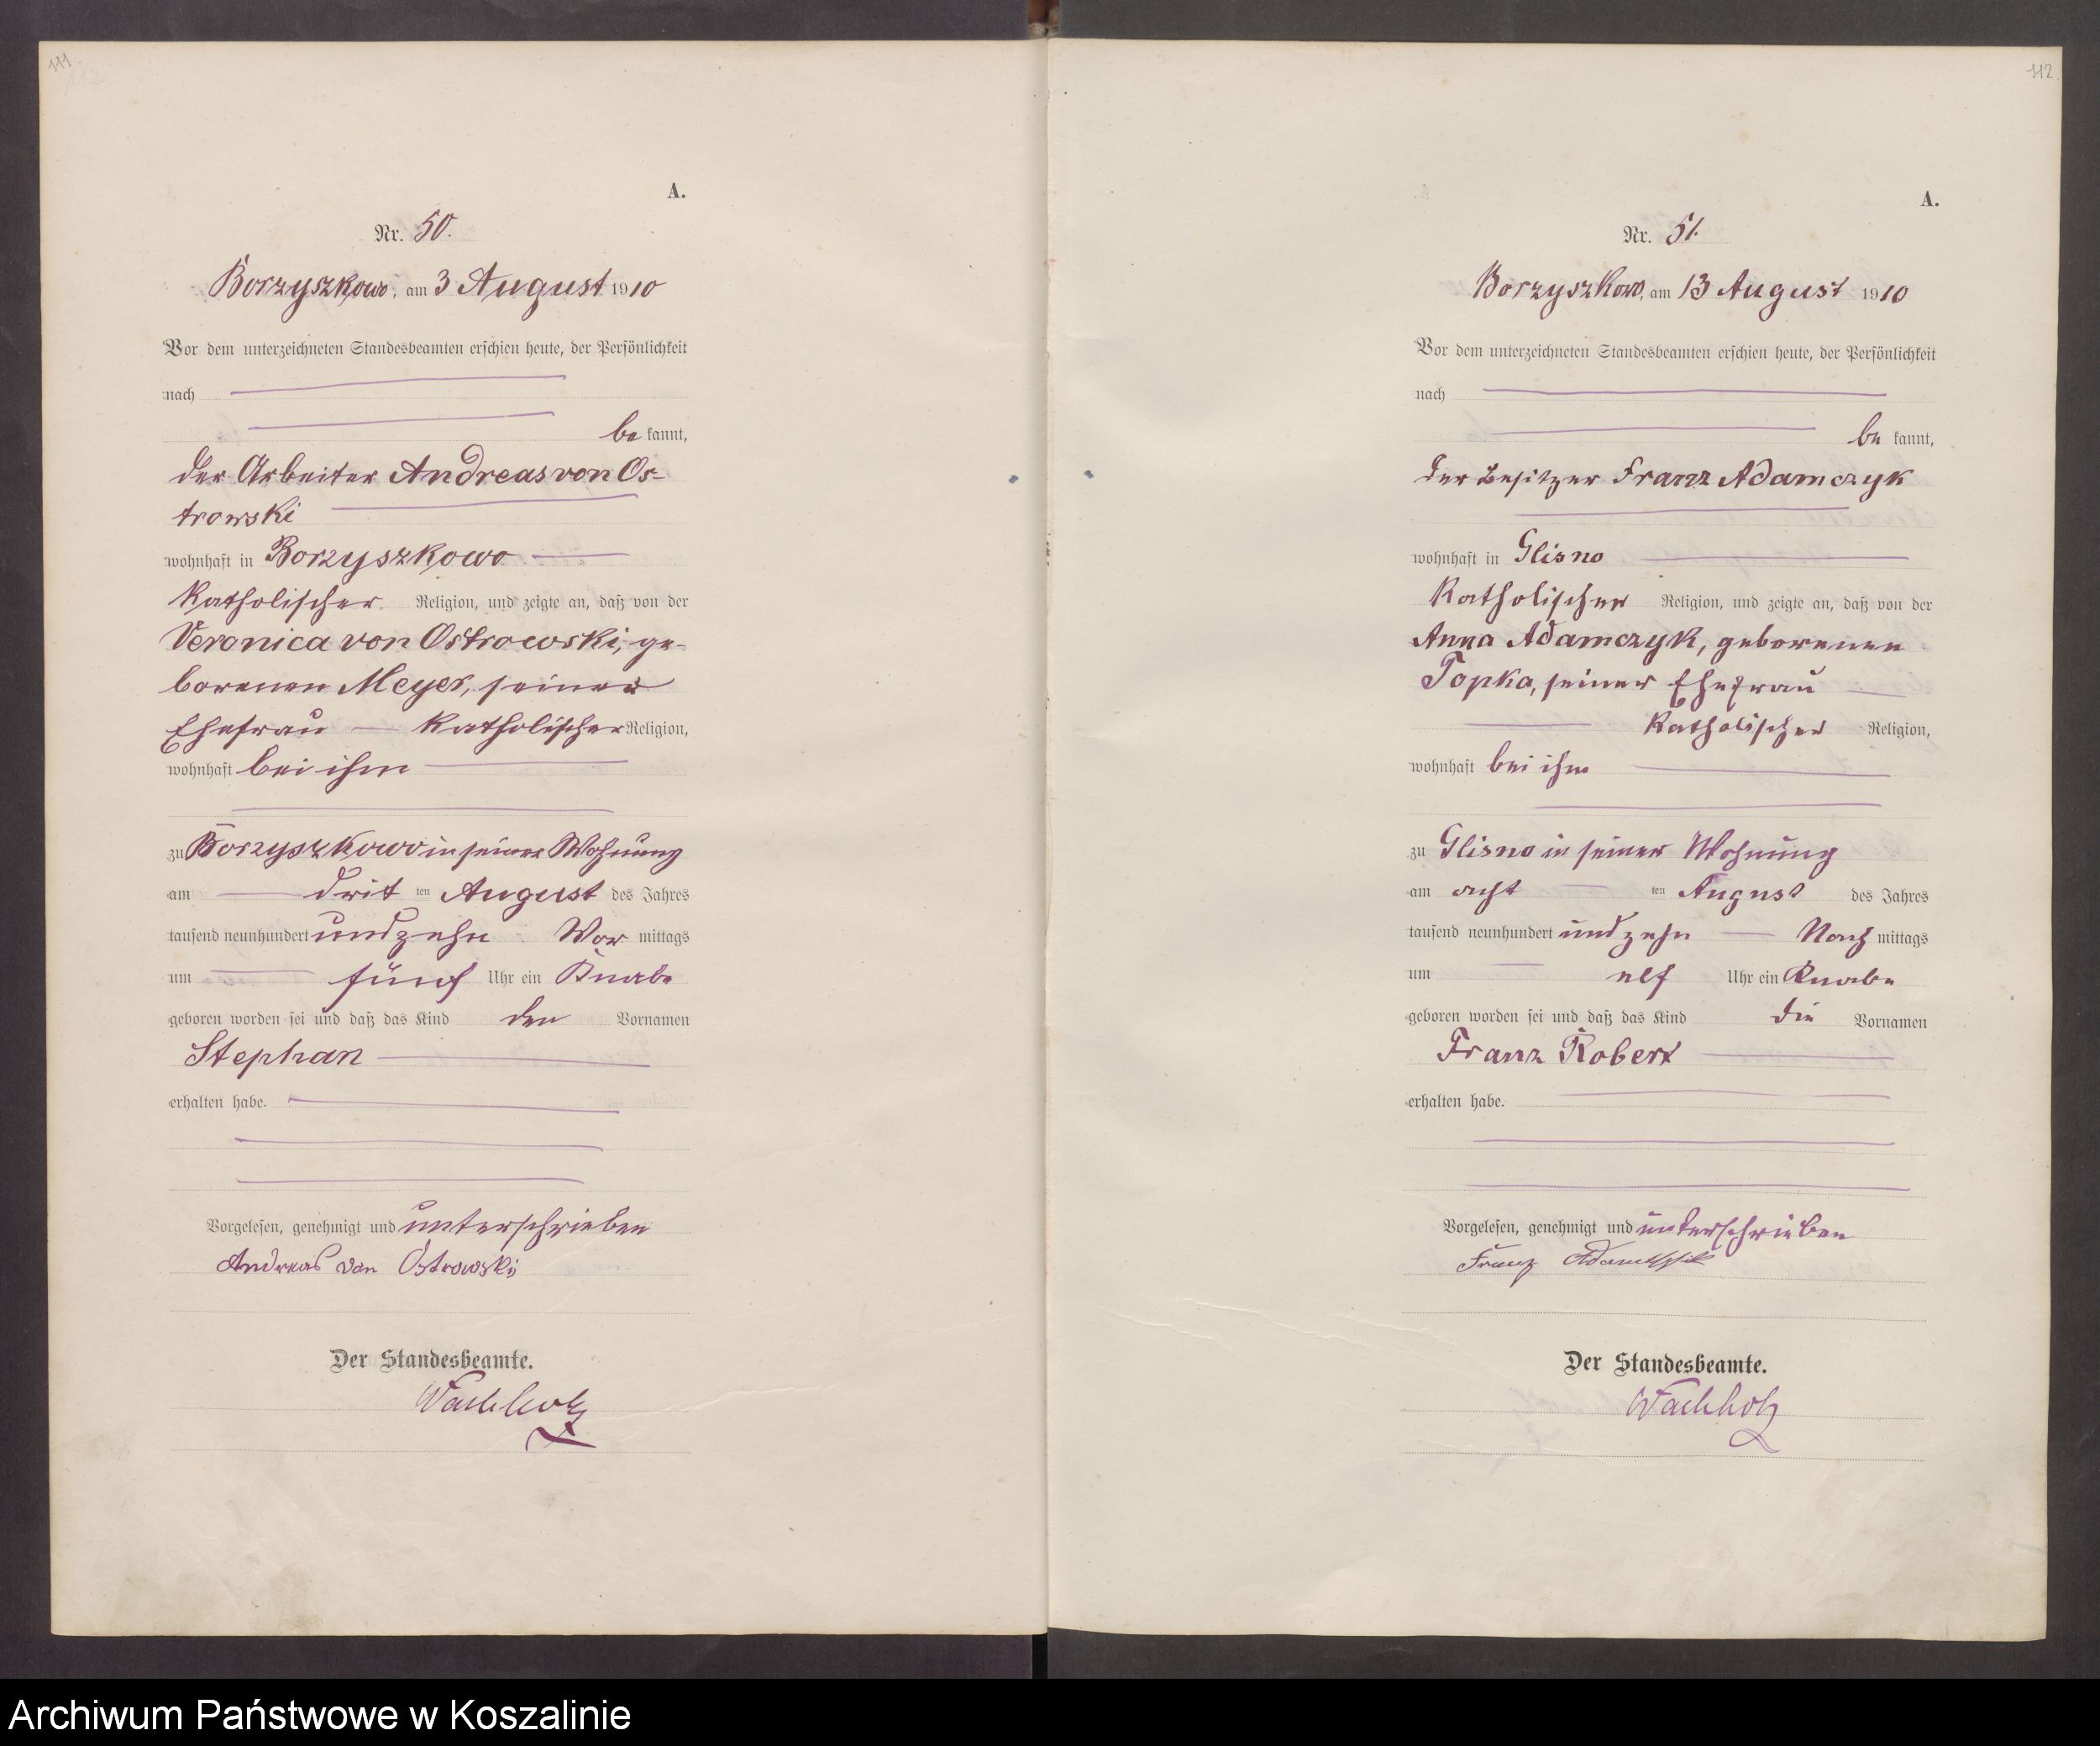 111
A.
Nr. 50.
Borzyszkowo, am 3 August 1910
Vor dem unterzeichneten Standesbeamten erschien heute, der Persönlichkeit
nach
be kannt,
der Arbeiter Andreas von Os-
trowski
wohnhaft in Borzyszkowo
katholischer Religion, und zeigte an, daß von der
Veronica von Ostrowski, ge-
borenen Meyer, seiner
Ehefrau katholischer Religion,
wohnhaft bei ihm
zu Borzyszkowo in seiner Wohnung
am drit ten August des Jahres
tausend neunhundert undzehn Vor mittags
um fünf Uhr ein Knabe
geboren worden sei und daß das Kind den Vornamen
Stephan
erhalten habe.
Vorgelesen, genehmigt und unterschrieben
Andreas von Ostrowski
Der Standesbeamte.
Wachholz
112
A.
Nr. 51.
Borzyszkowo, am 13 August 1910
Vor dem unterzeichneten Standesbeamten erschien heute, der Persönlichkeit
nach
be kannt,
der Besitzer Franz Adamczyk
wohnhaft in Glisno
katholischer Religion, und zeigte an, daß von der
Anna Adamczyk, geborenen
Topka, seiner Ehefrau
katholischer Religion,
wohnhaft bei ihm
zu Glisno in seiner Wohnung
am acht ten August des Jahres
tausend neunhundert undzehn Nach mittags
um elf Uhr ein Knabe
geboren worden sei und daß das Kind die Vornamen
Franz Robert
erhalten habe.
Vorgelesen, genehmigt und unterschrieben
Franz
Der Standesbeamte.
Wachholz
Archiwum Państwowe w Koszalinie